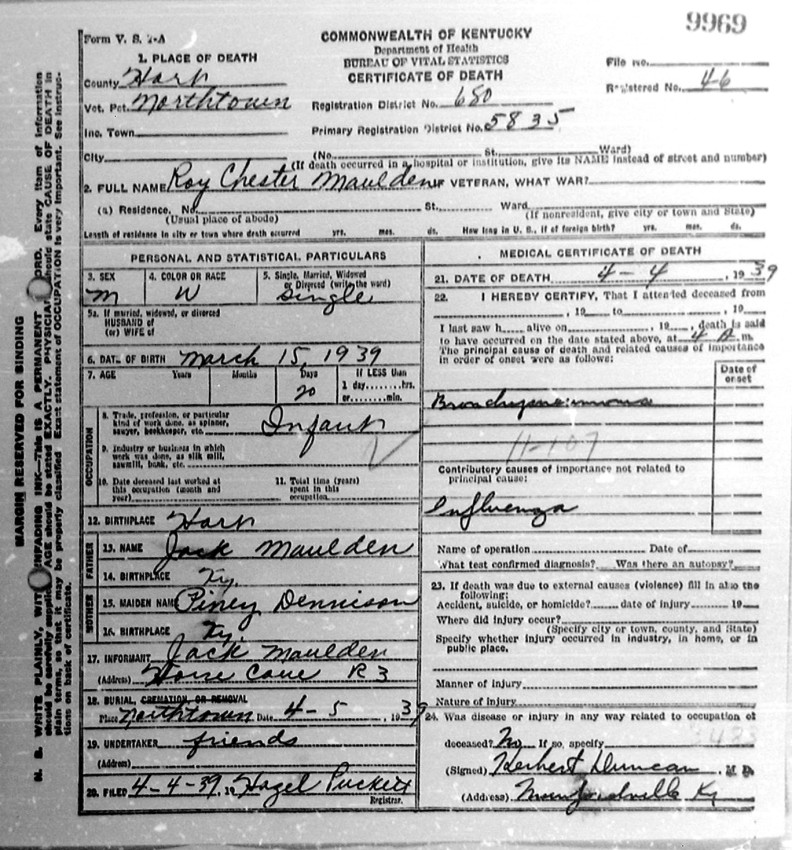 9969
Form V. S. 1-A
COMMONWEALTH OF KENTUCKY
Department of Health
BUREAU OF VITAL STATISTICS
CERTIFICATE OF DEATH
File No.
Registered No. 46
1. PLACE OF DEATH
County Hart
Vot. Pct. Northtown
Inc. Town.
Registration District No. 680
Primary Registration District No. 5835
City (No. St. Ward)
(If death occurred in a hospital or institution, give its NAME instead of street and number)
2. FULL NAME Roy Chester Maulden IF VETERAN, WHAT WAR?
(a) Residence. No. St. Ward.
(Usual place of abode) (If nonresident, give city or town and State)
Length of residence in city or town where death occurred yrs. mos. ds. How long in U. S., if of foreign birth? yrs. mos. ds.
PERSONAL AND STATISTICAL PARTICULARS
3. SEX
M
4. COLOR OR RACE
W
5. Single, Married, Widowed
or Divorced (write the word)
Single
5a. If married, widowed, or divorced
HUSBAND of
(or) WIFE of
6. DATE OF BIRTH March 15, 1939
7. AGE Years Months Days If LESS than
20 1 day, hrs.
or min.
OCCUPATION
8. Trade, profession, or particular
kind of work done, as spinner,
sawyer, bookkeeper, etc. Infant
9. Industry or business in which
work was done, as silk mill,
sawmill, bank, etc.
10. Date deceased last worked at
this occupation (month and
year)
11. Total time (years)
spent in this
occupation
12. BIRTHPLACE Hart
FATHER
13. NAME Jack Maulden
14. BIRTHPLACE Ky.
MOTHER
15. MAIDEN NAME Piney Dennison
16. BIRTHPLACE Ky.
17. INFORMANT Jack Maulden
(Address) Horse Cave R 3
18. BURIAL, CREMATION, OR REMOVAL
Place Northtown Date 4-5, 1939
19. UNDERTAKER friends
(Address)
20. FILED 4-4-39, 19 Hazel Puckett
Registrar.
MEDICAL CERTIFICATE OF DEATH
21. DATE OF DEATH 4-4, 1939
22. I HEREBY CERTIFY, That I attended deceased from
, 19 to , 19
I last saw h alive on , 19 , death is said
to have occurred on the date stated above, at 4 m.
The principal cause of death and related causes of importance
in order of onset were as follows:
Date of
onset
Bronchopneumonia
11-107
Contributory causes of importance not related to
principal cause:
Influenza
Name of operation Date of
What test confirmed diagnosis? Was there an autopsy?
23. If death was due to external causes (violence) fill in also the
following:
Accident, suicide, or homicide? date of injury 19
Where did injury occur?
(Specify city or town, county, and State)
Specify whether injury occurred in industry, in home, or in
public place.
Manner of injury
Nature of injury
24. Was disease or injury in any way related to occupation of
deceased? No If so, specify
(Signed) Herbert Duncan, M. D.
(Address) Munfordville Ky
MARGIN RESERVED FOR BINDING
N. B. WRITE PLAINLY, WITH UNFADING INK—This is A PERMANENT RECORD. Every item of information
should be carefully supplied. AGE should be stated EXACTLY. PHYSICIANS should state CAUSE OF DEATH in
plain terms, so that it may be properly classified. Exact statement of OCCUPATION is very important. See instruc-
tions on back of certificate.